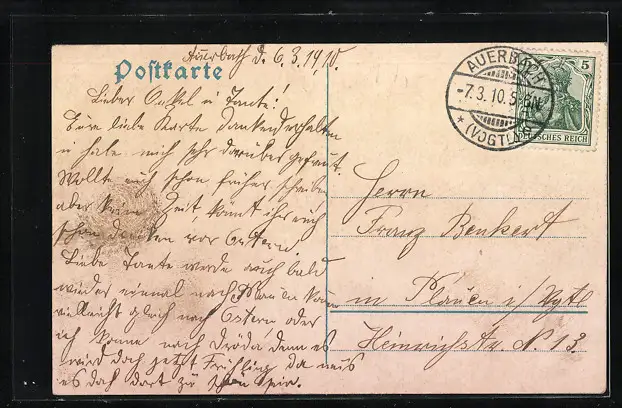 Auerbach d. 6.3.1910.
Postkarte
Lieber Onkel u Tante!
Eure liebe Karte dankend erhalten
u habe mich sehr darüber gefreut.
Wollte euch schon früher schreiben
aber keine Zeit, könnt ihr euch
schon denken vor Ostern.
Liebe Tante werde auch bald
wieder einmal nach Plauen komm
vielleicht gleich nach Ostern, oder
ich komme nach Dröda denn es
wird doch jetzt Frühling da muß
es doch dort zu schön sein.
AUERBACH
-7.3.10. 5-6N.
* (VOGTL.)
5
DEUTSCHES REICH
Herrn
Franz Benkert
in Plauen i/Vgtl
Heinrichstr. N. 13.